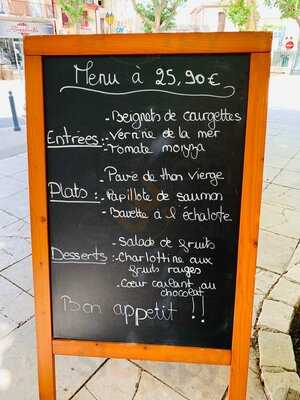 Menu à 25,90€
- Beignets de courgettes
Entrées:- Verrine de la mer
- Tomate mozza
- Pavé de thon vierge
Plats:- Papillote de saumon
- Bavette à l'échalote
- Salade de fruits
Desserts:- Charlottine aux
fruits rouges
- Cœur coulant au
chocolat
Bon appetit !!